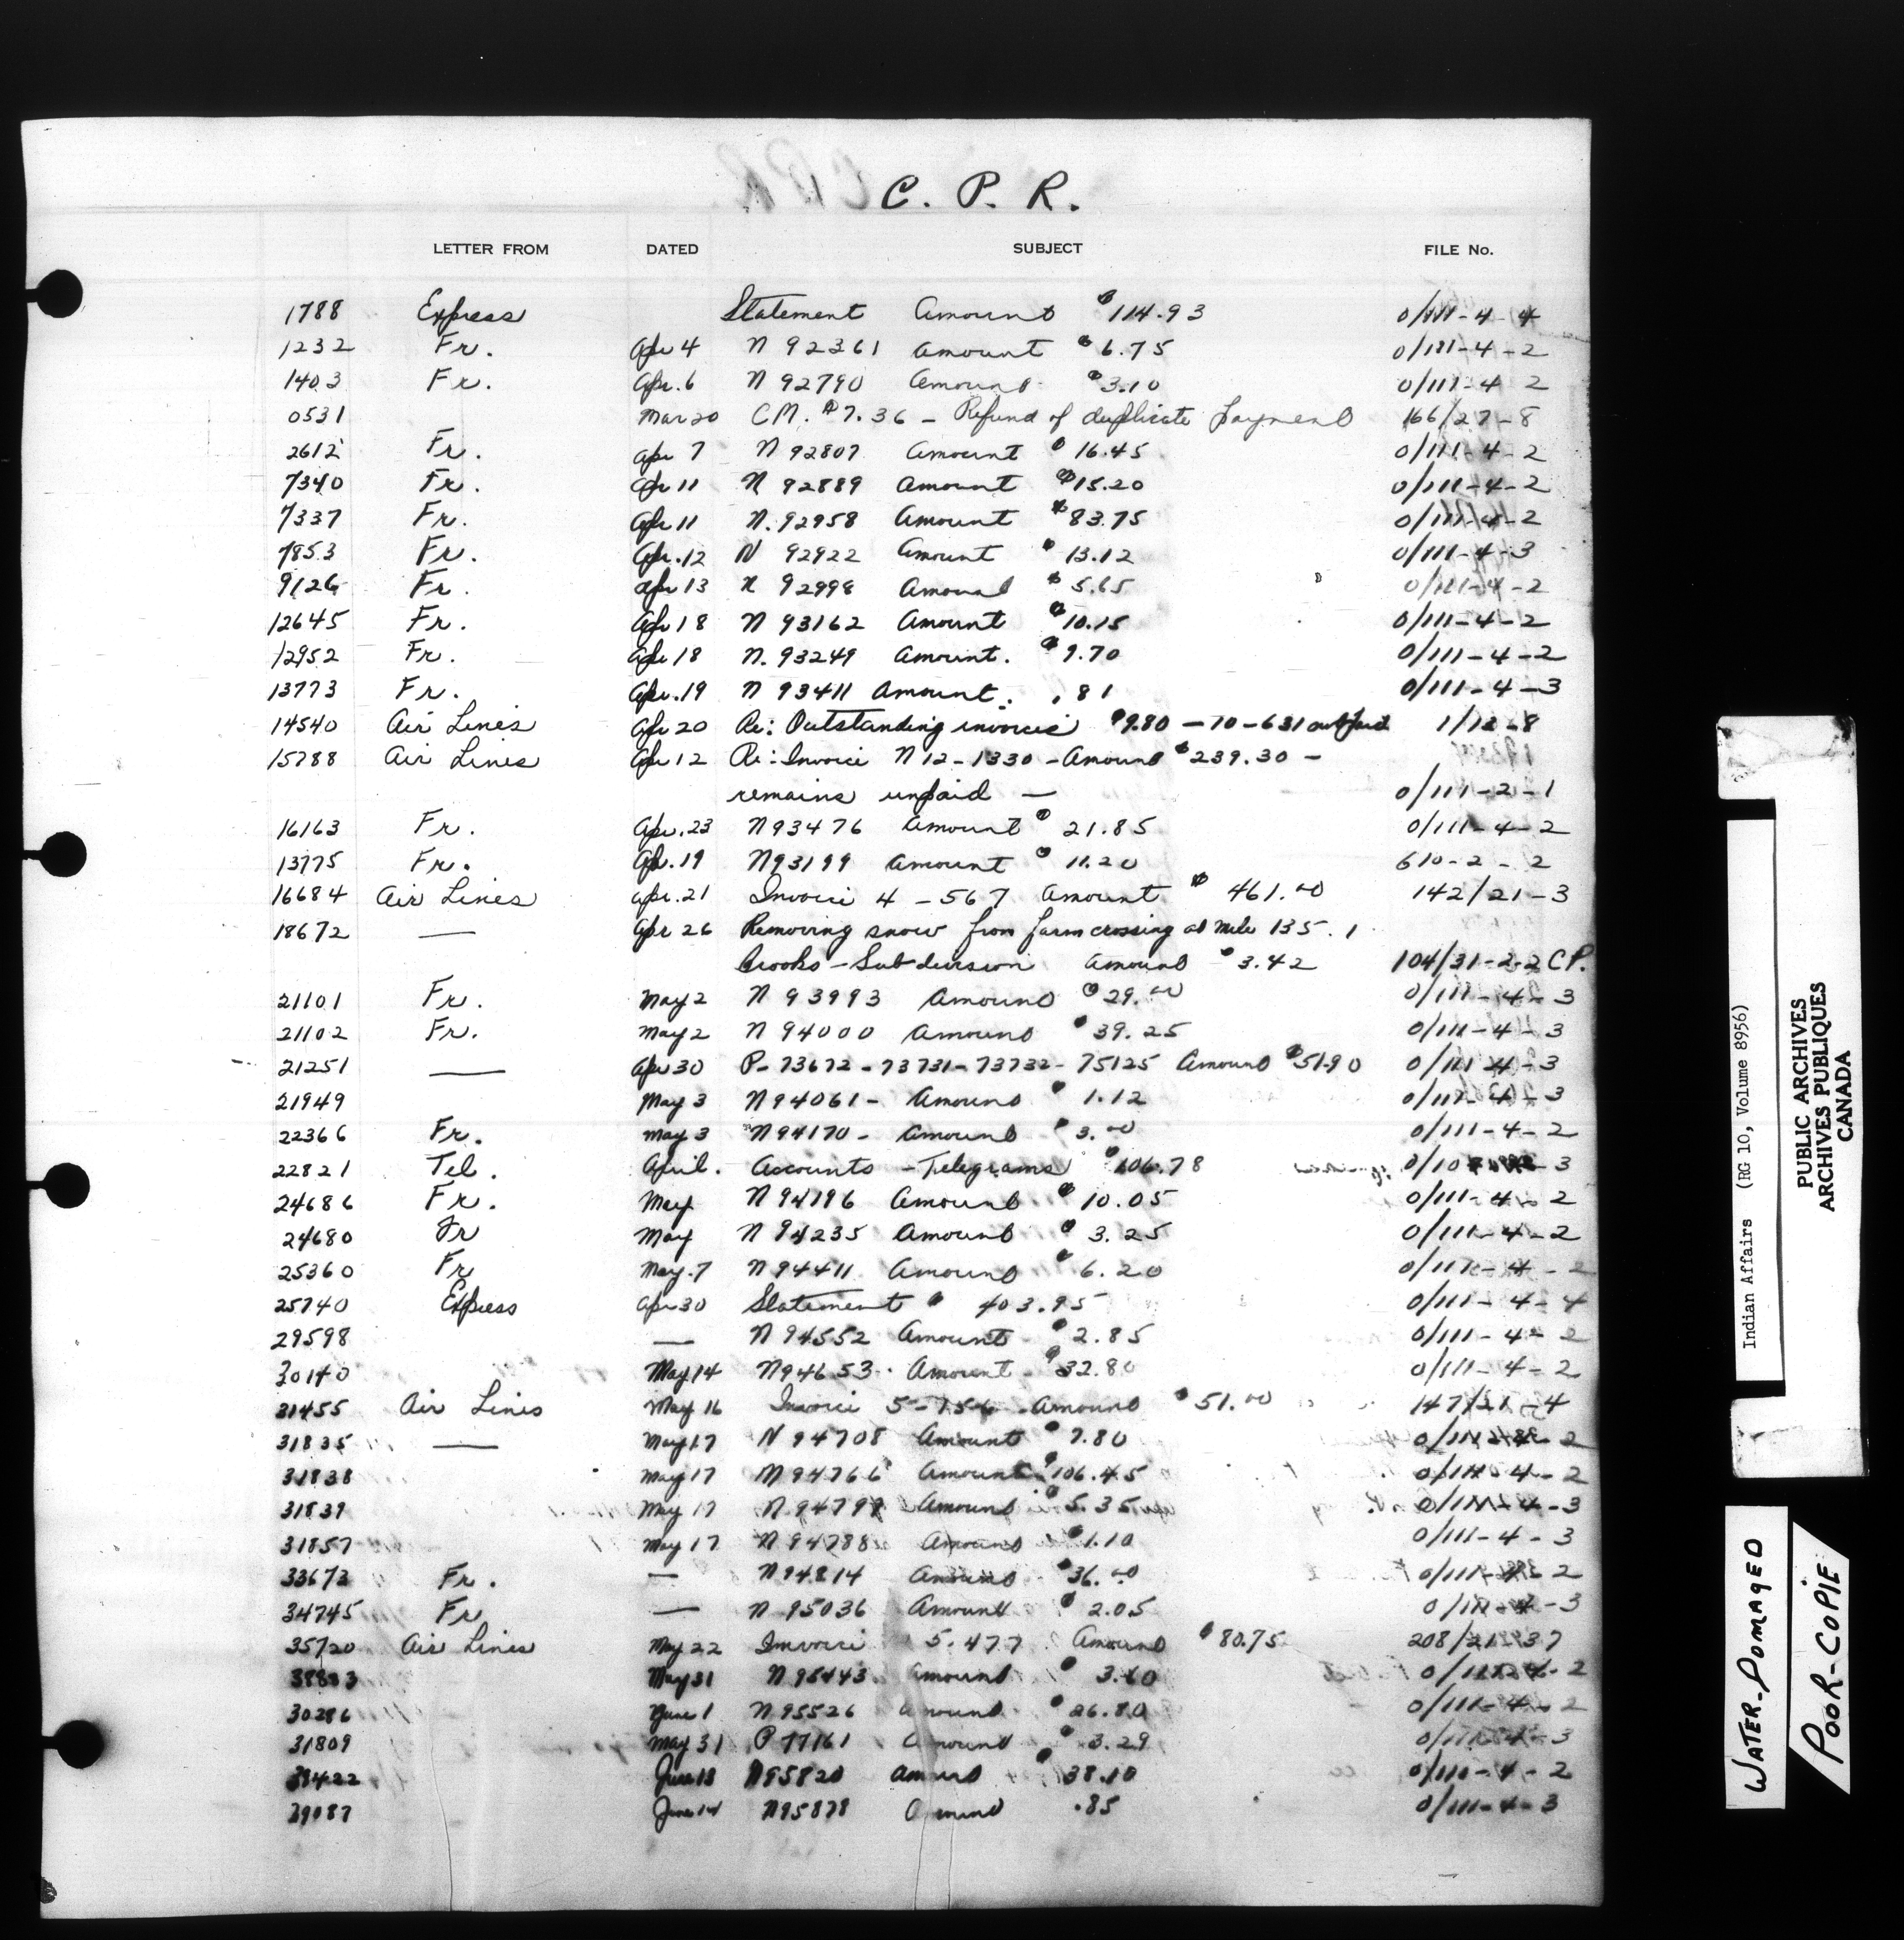 C. P. R.
LETTER FROM DATED SUBJECT FILE No.
1788 Express Statement Amount $114.93 0/111-4-4
1232 Fr. Apr 4 N 92361 Amount $6.75 0/111-4-2
1403 Fr. Apr. 6 N 92790 Amount $3.10 0/111-4-2
0531 Mar 20 CM. $7.36 - Refund of duplicate payment 166/27-8
2612 Fr. Apr 7 N 92807 Amount $16.45 0/111-4-2
7340 Fr. Apr 11 N 92889 Amount $15.20 0/111-4-2
7337 Fr. Apr 11 N. 92958 Amount $83.75 0/111-4-2
7853 Fr. Apr. 12 N 92922 Amount $13.12 0/111-4-3
9126 Fr. Apr 13 N 92998 Amount $5.65 0/111-4-2
12645 Fr. Apr 18 N 93162 Amount $10.15 0/111-4-2
12952 Fr. Apr 18 N. 93249 Amount. $9.70 0/111-4-2
13773 Fr. Apr. 19 N 93411 Amount. .81 0/111-4-3
14540 Air Lines Apr 20 Re: Outstanding invoices $9.80 - 70-631 1/12-8
15788 Air Lines Apr 12 Re: Invoice N 12-1330 - Amount $239.30 -
remains unpaid — 0/111-2-1
16163 Fr. Apr. 23 N93476 Amount $21.85 0/111-4-2
13775 Fr. Apr. 19 N93199 Amount $11.20 610-2-2
16684 Air Lines Apr. 21 Invoice 4-567 Amount $461.00 142/21-3
18672 — Apr 26 Removing snow from farm crossing at mile 135.1
Brooks - Subdivision Amount $3.42 104/31-2-2 C.P.
21101 Fr. May 2 N 93993 Amount $29.00 0/111-4-3
21102 Fr. May 2 N 94000 Amount $39.25 0/111-4-3
21251 — Apr 30 P-73672-73731-73732-75125 Amount $51.90 0/111-4-3
21949 May 3 N94061- Amount $1.12 0/111-4-3
22366 Fr. May 3 N94170- Amount $3.00 0/111-4-2
22821 Tel. April. Accounts - Telegrams $106.78
24686 Fr. May N 94196 Amount $10.05 0/111-4-2
24680 Fr May N 94235 Amount $3.25 0/111-4-2
25360 Fr May. 7 N 94411 Amount $6.20 0/111-4-2
25740 Express Apr 30 Statement $403.95 0/111-4-4
29598 — N 94552 Amount $2.85 0/111-4-2
30140 May 14 N94653 Amount $32.80 0/111-4-2
31455 Air Lines May 16 Invoice Amount $51.00 147/21-4
31835 — May 17 N 94708 Amount $7.80 0/111-4-2
31838 May 17 N 94766 Amount $106.45 0/111-4-2
31839 May 17 Amount $5.35 0/111-4-3
31857 May 17 N 94788 Amount $1.10 0/111-4-3
33673 Fr. — N94814 Amount $36.00 0/111-4-2
34745 Fr — N 95036 Amount $2.05 0/111-4-3
35720 Air Lines May 22 Invoice 5.477 Amount $80.75 208/21-37
May 31 N 95443 Amount $3.60 0/111-4-2
30286 June 1 N95526 Amount $26.80 0/111-4-2
31809 May 31 P 77161 Amount $3.29 0/111-4-3
39422 June 13 N95820 Amount $38.10 0/110-4-2
39087 June 14 N95878 Amount .85 0/111-4-3
Indian Affairs (RG 10, Volume 8956)
PUBLIC ARCHIVES
ARCHIVES PUBLIQUES
CANADA
WATER-DOMAGED
POOR-COPIE